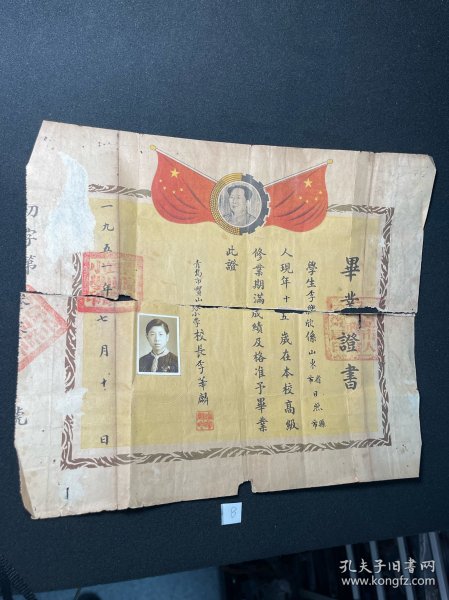 畢業證書
學生李興欣係山東省日照縣
市市
人現年十五歲在本校高級
修業期滿成績及格准予畢業
此證
青島市 山 小學校長李華麟
一九五一年七月十 日
初字第
號
B
孔夫子旧书网
www.kongfz.com